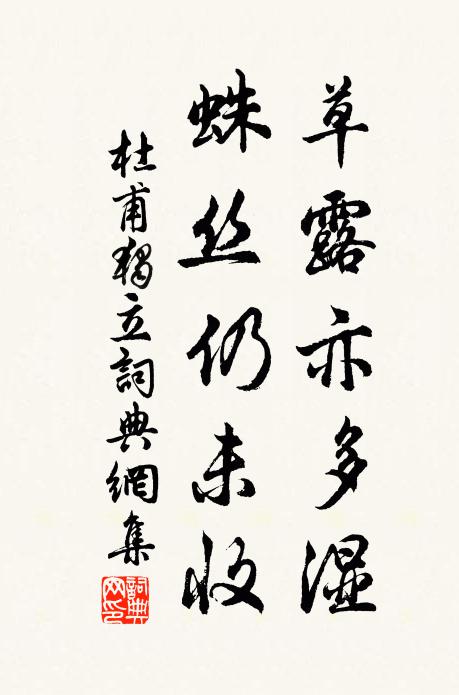 草露亦多湿
蛛丝仍未收
杜甫獨立詞典網集
詞典网印